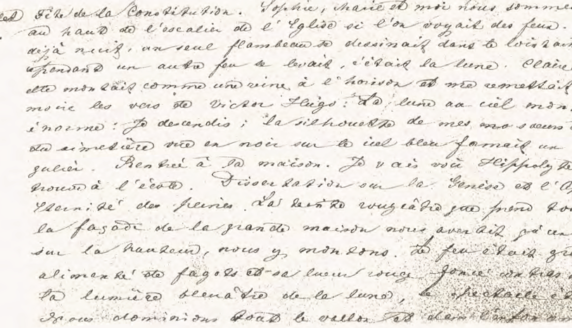 Fête de la Constitution. Sophie, Marie et moi nous sommes
au haut de l'escalier de l'Eglise si l'on voyait des feux.
déjà nuit, un seul flambeau se dessinait dans le lointain
cependant un autre feu se levait, c'était la lune. Claire
elle montait comme une reine à l'horison et me remettait
moire les vers de Victor Hugo: La lune au ciel
énorme: Je descendis; la silhouette de mes sœurs
du cimetière vue en noir sur le ciel bleu formait un
gulier. Rentrée à la maison. Je vais voir Hippolyte
à l'école. Dissertation sur la Genèse et
Eternité des peines. La teinte rougeâtre que prend
la façade de la grande maison nous avertit qu'un
sur la hauteur, nous y montons. Le feu était
alimenté de fagots et sa lueur rouge
la lumière bleuâtre de la lune, le spectacle
Nous dominions tout le vallon et